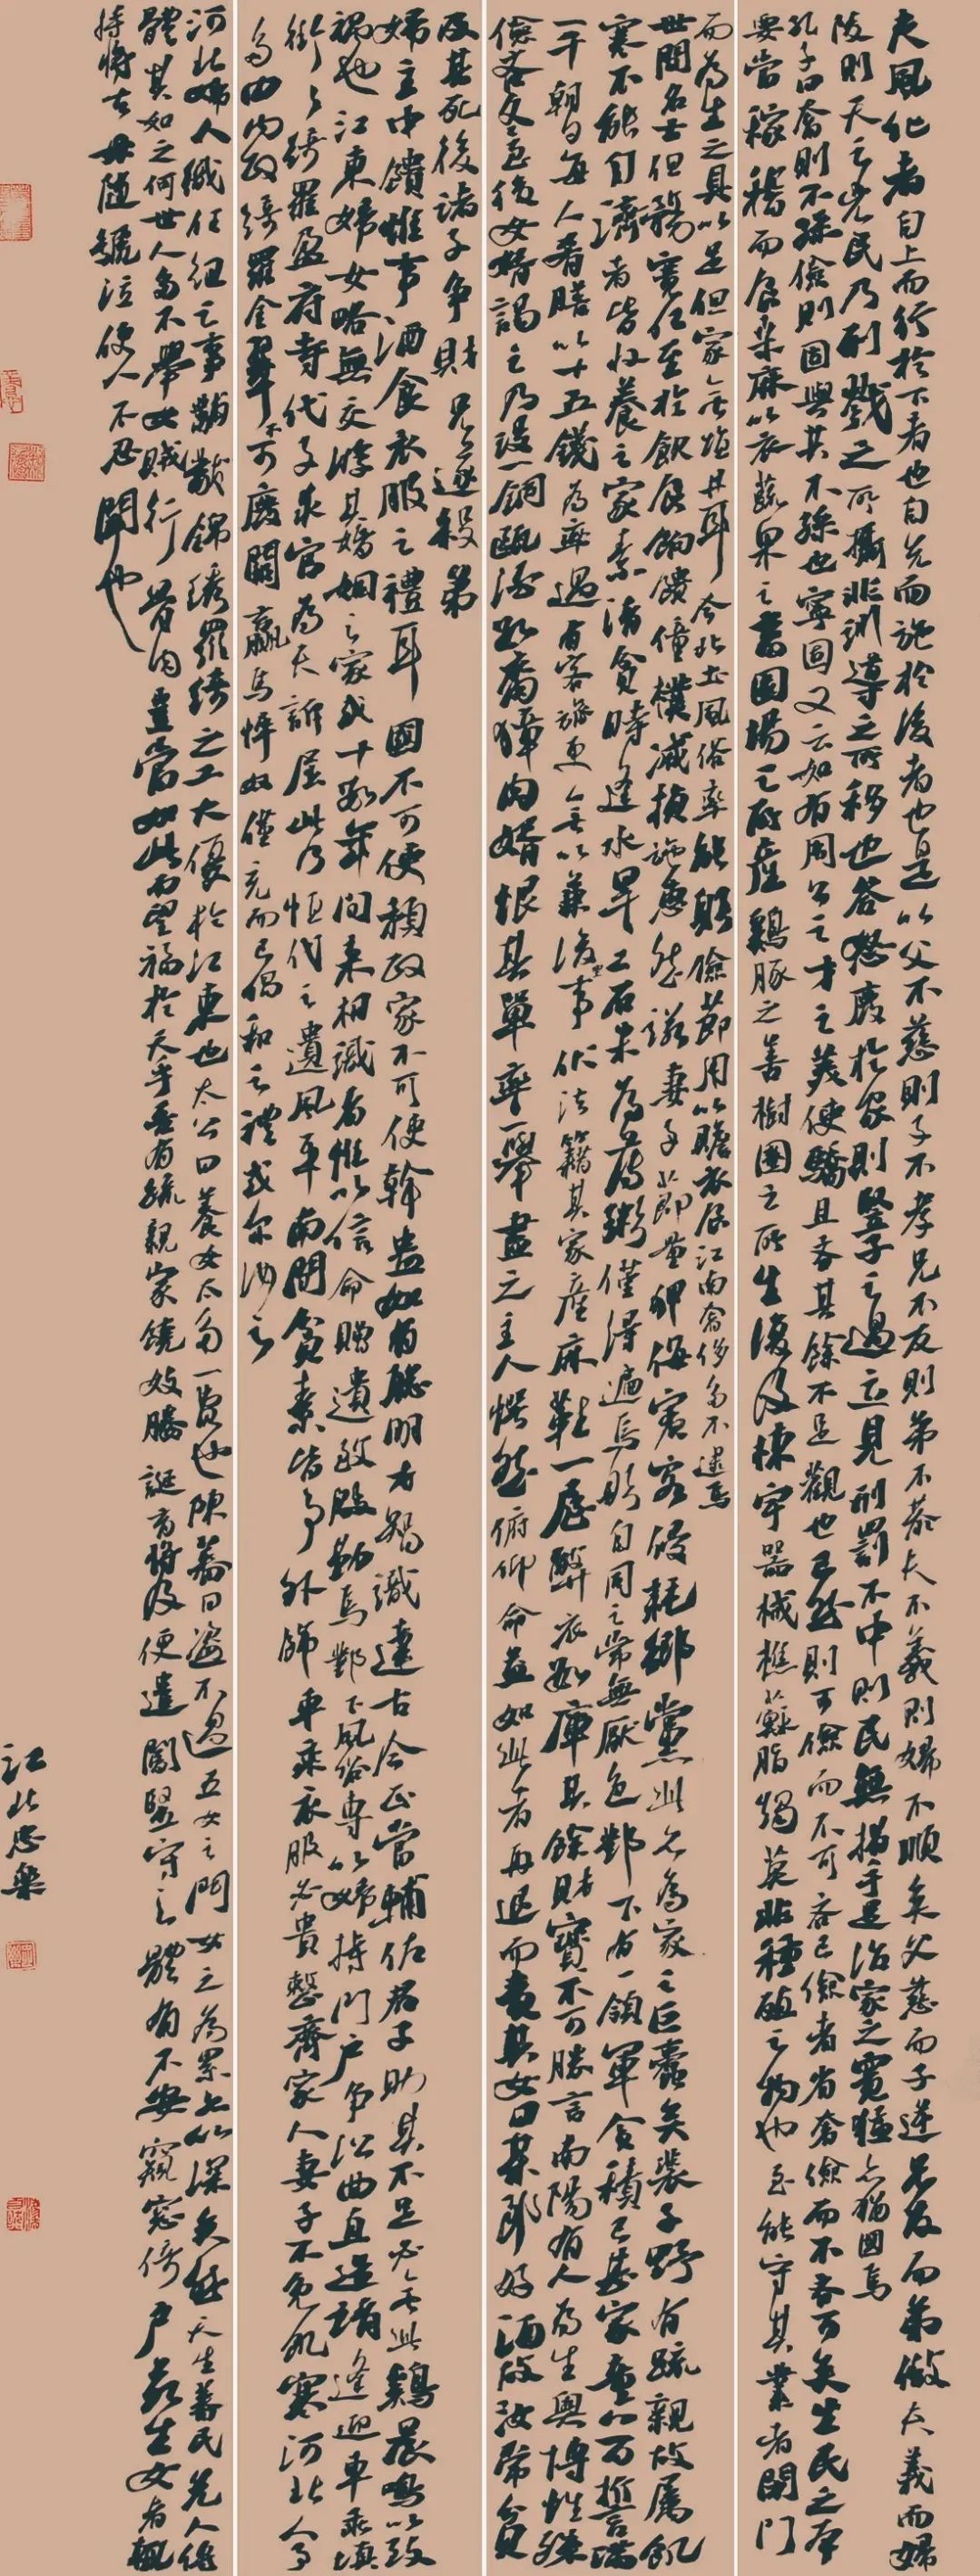 夫風化者自上而行於下者也自先而施於後者也是以父不慈則子不孝兄不友則弟不恭夫不義則婦不順矣父慈而子逆兄友而弟傲夫義而婦
陵則天之兇民乃刑戮之所攝非訓導之所移也笞怒廢於家則豎子之過立見刑罰不中則民無措手足治家之寬猛亦猶國焉
孔子曰奢則不孫儉則固與其不孫也寧固又云如有周公之才之美使驕且吝其餘不足觀也已然則可儉而不可吝已儉者省奢儉而不吝可矣生民之本
要當稼穡而食桑麻以衣蔬果之畜園場之所產雞豚之善樹圈之所生復及棟宇器械樵蘇脂燭莫非種殖之物也至能守其業者閉門
而為生之具以足但家無鹽井耳今北土風俗率能躬儉節用以贍衣食江南奢侈多不逮焉
世間名士但務寬仁至於飲食餉饋僮僕減損施惠然諾妻子節量狎侮賓客侵耗鄉黨此亦為家之巨蠹矣裴子野有疏親故屬飢
寒不能自濟者皆收養之家素清貧時逢水旱二石米為薄粥僅得遍焉躬自同之常無厭色鄴下有一領軍貪積已甚家童八百誓滿
一千朝夕每人肴膳以十五錢為率遇有客旅更無以兼後坐事伏法籍其家產麻鞋一屋弊衣數庫其餘財寶不可勝言南陽有人為生奧博性殊
儉吝冬至後女婿謁之乃設一銅甌酒數臠獐肉婿恨其單率一舉盡之主人愕然俯仰命益如此者再退而責其女曰某郎好酒故汝常貧
及其死後諸子爭財兄遂殺弟
婦主中饋惟事酒食衣服之禮耳國不可使預政家不可使幹蠱如有聰明才智識達古今正當輔佐君子助其不足必無此雞晨鳴以致
禍也江東婦女略無交游其婚姻之家或十數年間未相識者惟以信命贈遺致殷勤焉鄴下風俗專以婦持門戶爭訟曲直造請逢迎車乘填
街衢綺羅盈府寺代子求官為夫訴屈此乃恒代之遺風乎南間貧素皆事外飾車乘衣服必貴整齊家人妻子不免飢寒河北人事
多由內政綺羅金翠不可廢闕羸馬悴奴僅充而已倡和之禮或爾汝之
河北婦人織任組之事黼黻錦繡羅綺之工大優於江東也太公曰養女太多一費也陳蕃曰盜不過五女之門女之為累亦以深矣然天生蒸民先人傳
體其如之何世人多不舉女賊行骨肉豈當如此而望福於天乎吾有疏親家饒妓媵誕育將及便遣閽豎守之體有不安窺窗倚戶若生女者輒
持將去母隨號泣使人不忍聞也
江北